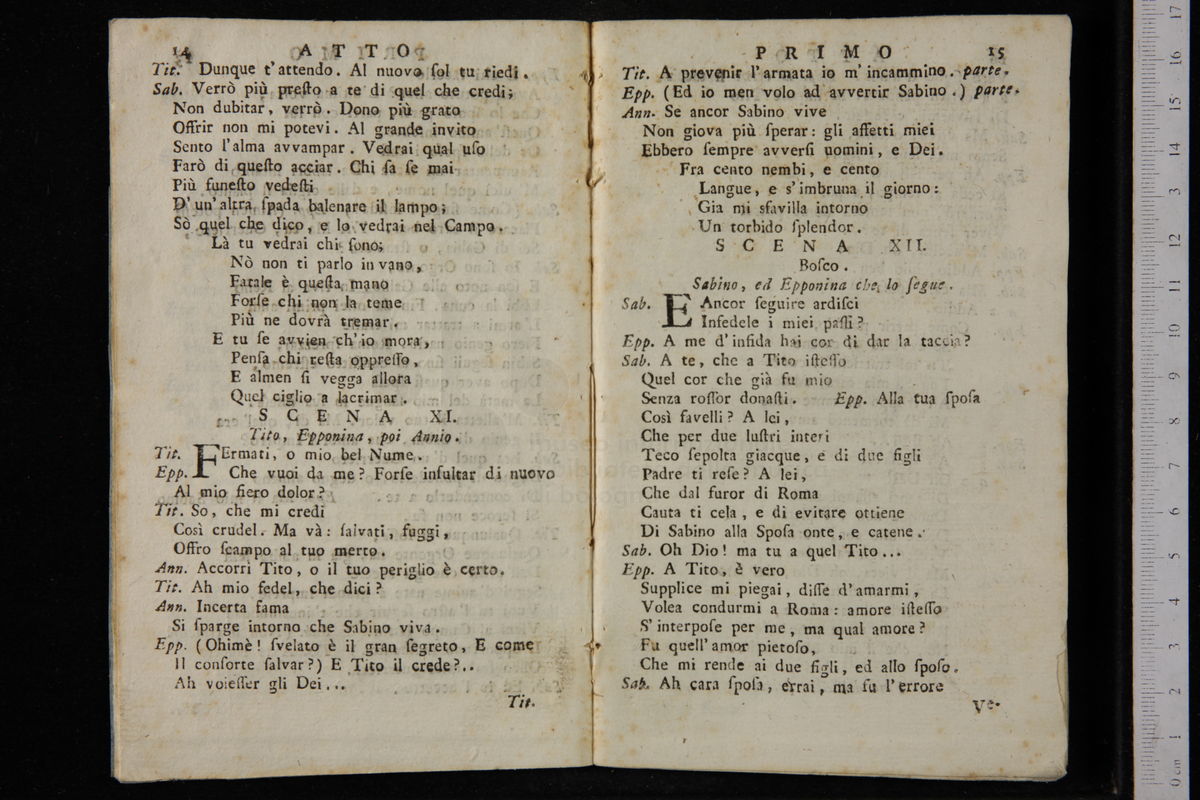 14 A T T O
Tit. Dunque t'attendo. Al nuovo ſol tu riedi.
Sab. Verrò più preſto a te di quel che credi;
Non dubitar, verrò. Dono più grato
Offrir non mi potevi. Al grande invito
Sento l'alma avvampar. Vedrai qual uſo
Farò di queſto acciar. Chi ſa ſe mai
Più funeſto vedeſti
D'un'altra ſpada balenare il lampo;
Sò quel che dico, e lo vedrai nel Campo.
Là tu vedrai chi ſono;
Nò non ti parlo in vano,
Fatale è queſta mano
Forſe chi non la teme
Più ne dovrà tremar.
E tu ſe avvien ch'io mora,
Penſa chi reſta oppreſſo,
E almen ſi vegga allora
Quel ciglio a lacrimar.
S C E N A XI.
Tito, Epponina, poi Annio.
Tit. FErmati, o mio bel Nume.
Epp. Che vuoi da me? Forſe inſultar di nuovo
Al mio fiero dolor?
Tit. So, che mi credi
Così crudel. Ma và: ſalvati, fuggi,
Offro ſcampo al tuo merto.
Ann. Accorri Tito, o il tuo periglio è certo.
Tit. Ah mio fedel, che dici?
Ann. Incerta fama
Si ſparge intorno che Sabino viva.
Epp. (Ohimè! ſvelato è il gran ſegreto, E come
Il conſorte ſalvar?) E Tito il crede?..
Ah voleſſer gli Dei...
Tit.
P R I M O 15
Tit. A prevenir l'armata io m'incammino. parte.
Epp. (Ed io men volo ad avvertir Sabino.) parte.
Ann. Se ancor Sabino vive
Non giova più ſperar: gli affetti miei
Ebbero ſempre avverſi uomini, e Dei.
Fra cento nembi, e cento
Langue, e s'imbruna il giorno:
Gia mi sfavilla intorno
Un torbido ſplendor.
S C E N A XII.
Boſco.
Sabino, ed Epponina che lo ſegue.
Sab. E Ancor ſeguire ardiſci
Infedele i miei paſſi?
Epp. A me d'infida hai cor di dar la taccia?
Sab. A te, che a Tito iſteſſo
Quel cor che già fu mio
Senza roſſor donaſti. Epp. Alla tua ſpoſa
Così favelli? A lei,
Che per due luſtri interi
Teco ſepolta giacque, e di due figli
Padre ti reſe? A lei,
Che dal furor di Roma
Cauta ti cela, e di evitare ottiene
Di Sabino alla Spoſa onte, e catene.
Sab. Oh Dio! ma tu a quel Tito...
Epp. A Tito, è vero
Supplice mi piegai, diſſe d'amarmi,
Volea condurmi a Roma: amore iſteſſo
S'interpoſe per me, ma qual amore?
Fu quell'amor pietoſo,
Che mi rende ai due figli, ed allo ſpoſo.
Sab. Ah cara ſpoſa, errai, ma fu l'errore
Ve-
0 cm 1 2 3 4 5 6 7 8 9 10 11 12 13 14 15 16 17